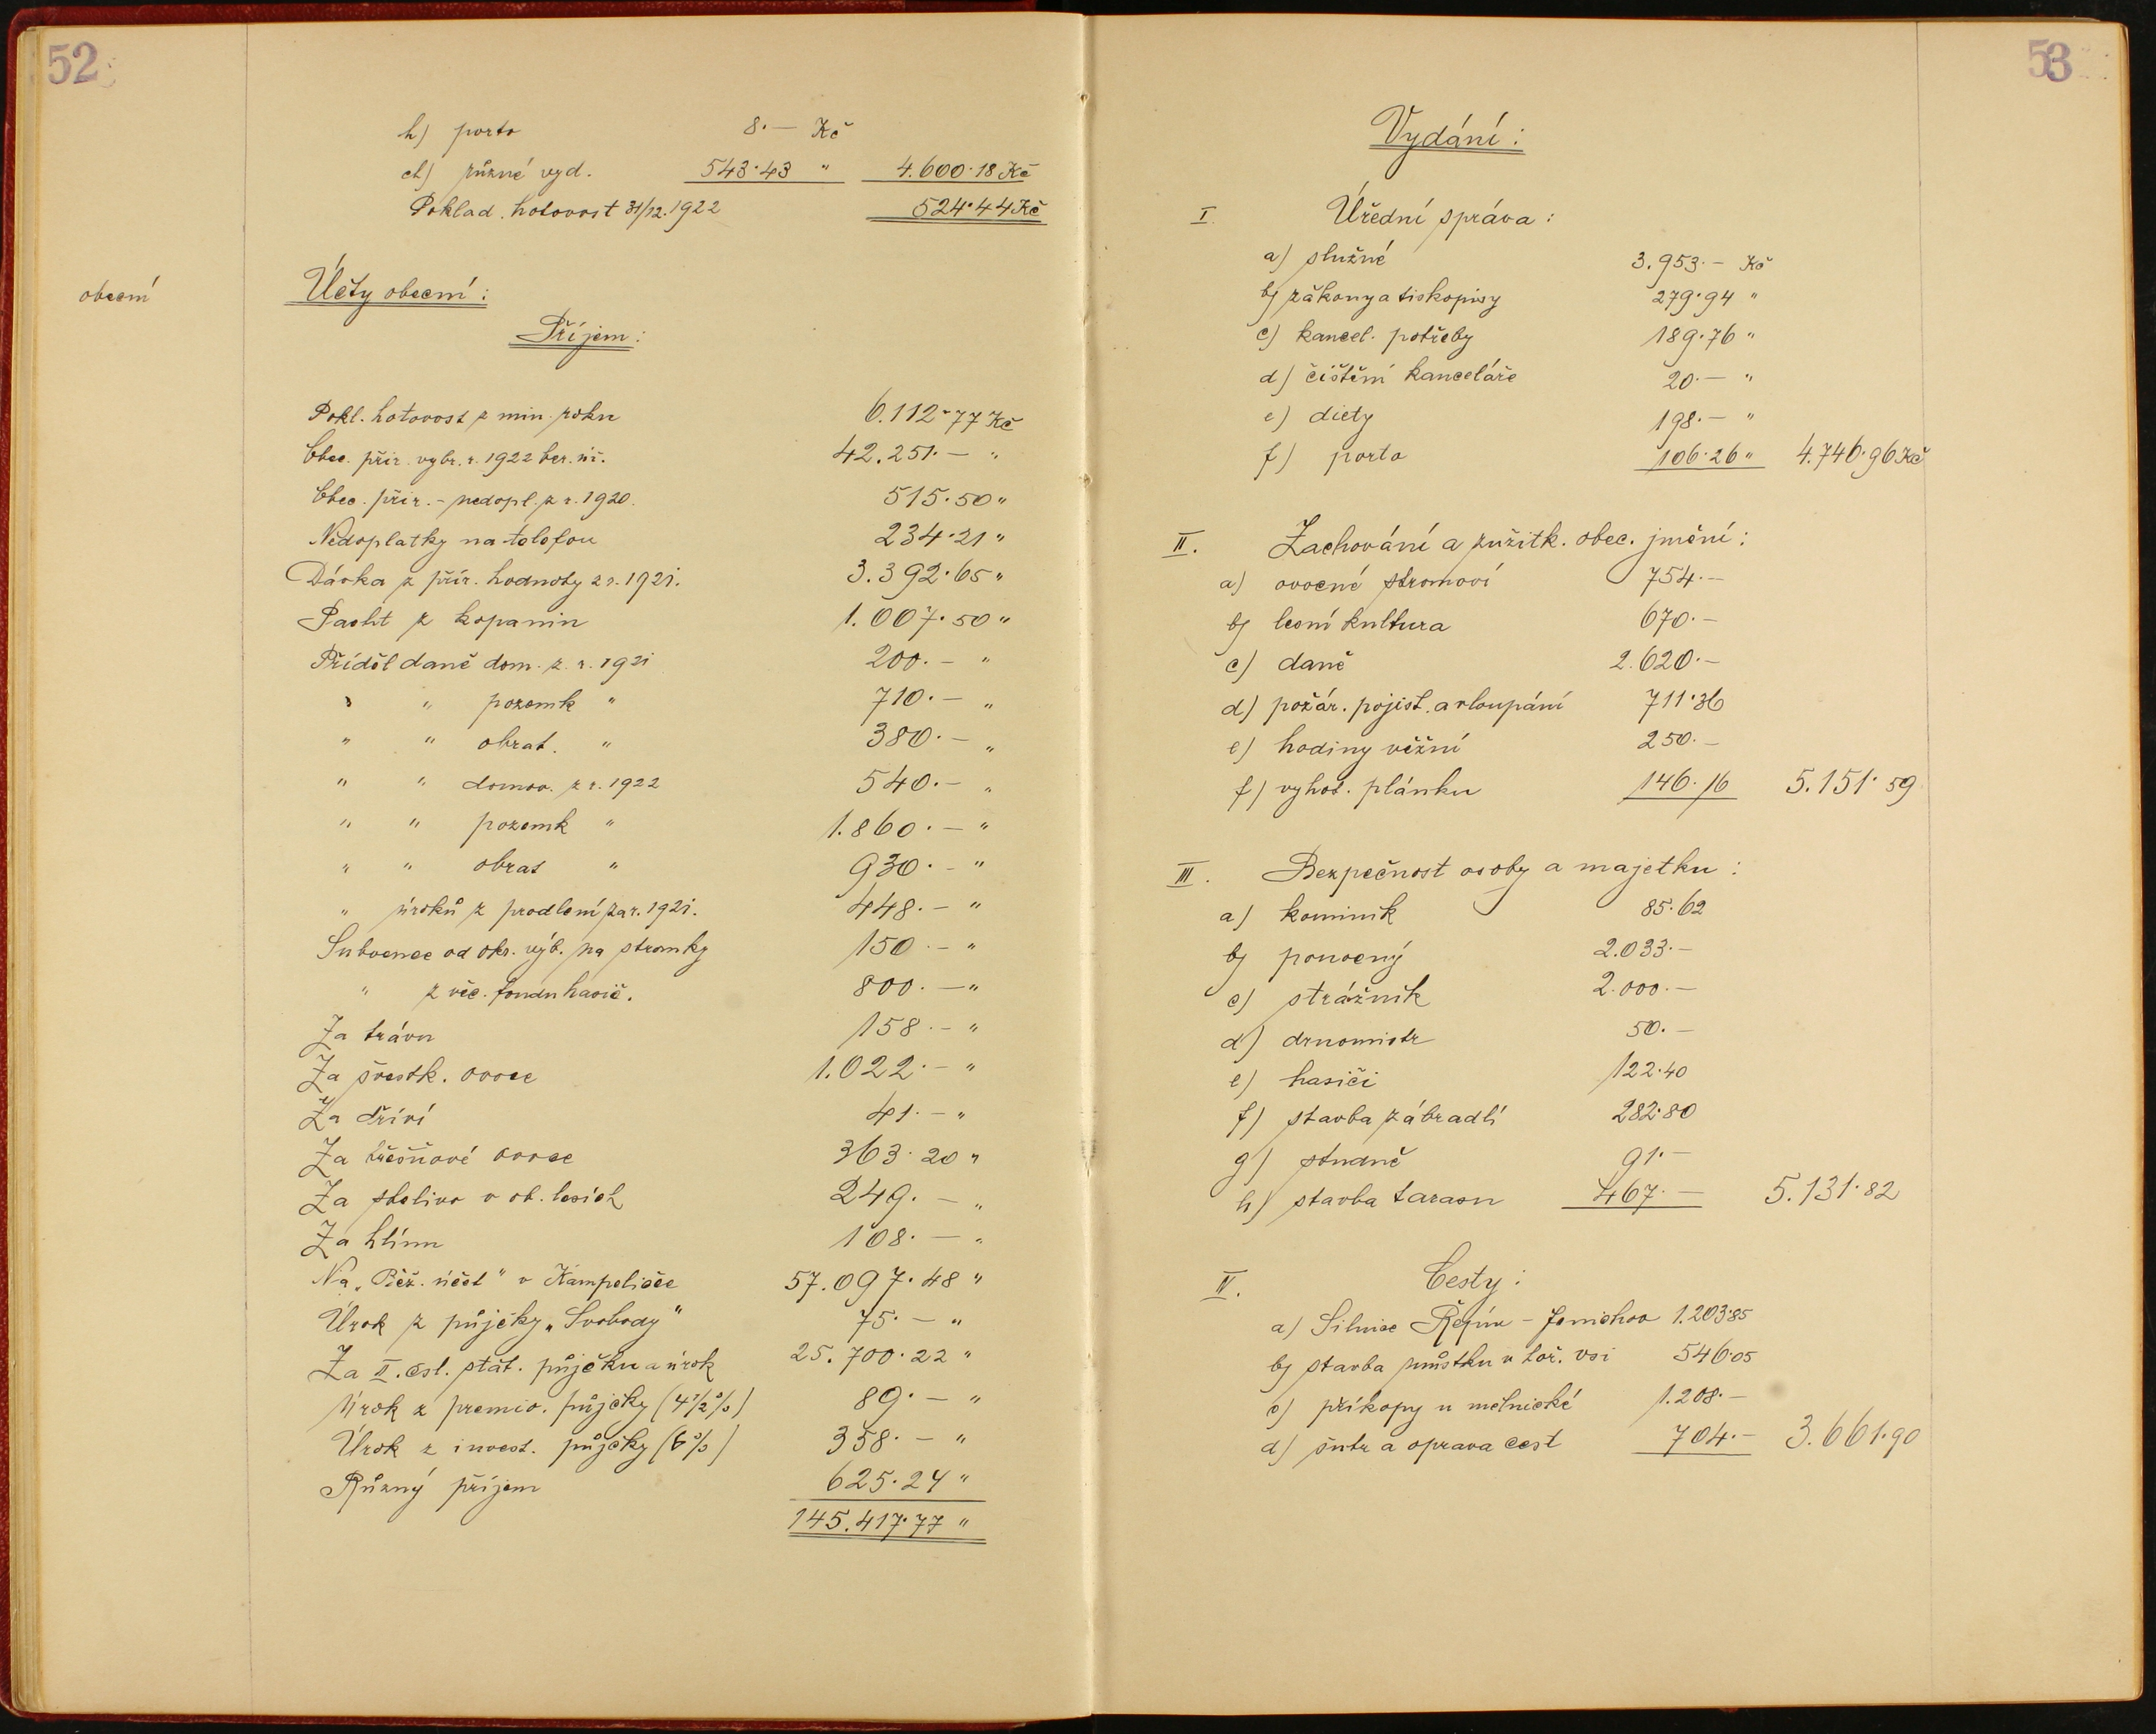 52
h) porto 8.— Kč
ch) různé vyd. 543.43 " 4.600.18 Kč
Poklad. hotovost 31/12.1922 524.44 Kč
obecní
Účty obecní:
Příjem:
Pokl. hotovost z min. roku 6.112.77 Kč
Obec. přir. vybr. r. 1922 ber. úř. 42.251.— "
Obec. přir. - nedopl. z r. 1920. 515.50 "
Nedoplatky na telefon 234.21 "
Dávka z přír. hodnoty z r. 1921. 3.392.65 "
Pacht z kopanin 1.007.50 "
Příděl daně dom. z r. 1921 200.— "
" " pozemk " 710.— "
" " obrat. " 380.— "
" " domov. z r. 1922 540.— "
" " pozemk " 1.860.— "
" " obrat " 930.— "
" úroků z prodlení za r. 1921. 448.— "
Subvence od okr. výb. na stromky 150.— "
" z věc. fondu hasič. 800.— "
Za trávu 158.— "
Za švestk. ovoce 1.022.— "
Za dříví 41.— "
Za třešňové ovoce 363.20 "
Za stelivo v ob. lesích 249.— "
Za hlínu 108.— "
Na „Běž. účet" v Kampeličce 57.097.48 "
Úrok z půjčky „Svobody" 75.— "
Za II. čsl. stát. půjčku a úrok 25.700.22 "
Úrok z premio. půjčky (4½%) 89.— "
Úrok z invest. půjčky (6%) 358.— "
Různý příjem 625.24 "
145.417.77 "
53
Vydání:
I. Úřední správa:
a) služné 3.953.— Kč
b) zákony a tiskopisy 279.94 "
c) kancel. potřeby 189.76 "
d) čištění kanceláře 20.— "
e) diety 198.— "
f) porto 106.26 " 4.746.96 Kč
II. Zachování a zužitk. obec. jmění:
a) ovocné stromoví 754.—
b) lesní kultura 670.—
c) daně 2.620.—
d) požár. pojist. a vloupání 711.36
e) hodiny věžní 250.—
f) vyhot. plánku 146.16 5.151.59
III. Bezpečnost osoby a majetku:
a) kominík 85.62
b) ponocný 2.033.—
c) strážník 2.000.—
d) drnomistr 50.—
e) hasiči 122.40
f) stavba zábradlí 282.80
g) studně 91.—
h) stavba tarasu 467.— 5.131.82
IV. Cesty:
a) Silnice Řepín - 1.203.85
b) stavba můstku v hoř. vsi 546.05
c) příkopy u mělnické 1.208.—
d) šutr a oprava cest 704.— 3.661.90